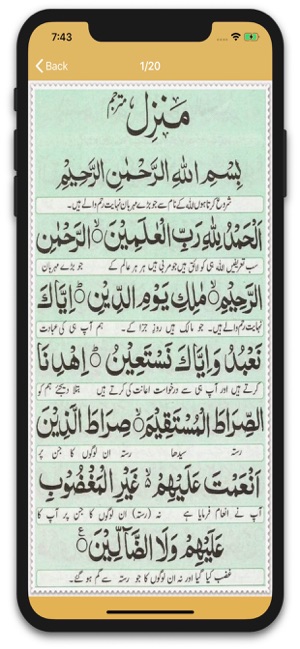 7:43
Back
1/20
مَنزِل مترجم
بِسْمِ اللهِ الرَّحْمٰنِ الرَّحِيْمِ
شروع کرتا ہوں اللہ کے نام سے جو بڑے مہربان نہایت رحم والے ہیں۔
اَلْحَمْدُ لِلّٰهِ رَبِّ الْعٰلَمِيْنَ ۙ الرَّحْمٰنِ
سب تعریفیں اللہ ہی کو لائق ہیں جو مربی ہیں ہر ہر عالم کے جو بڑے مہربان
الرَّحِيْمِ ۙ مٰلِكِ يَوْمِ الدِّيْنِ ؕ اِيَّاكَ
نہایت رحم والے ہیں۔ جو مالک ہیں روز جزا کے۔ ہم آپ ہی کی عبادت
نَعْبُدُ وَاِيَّاكَ نَسْتَعِيْنُ ؕ اِهْدِنَا
کرتے ہیں اور آپ ہی سے درخواست اعانت کی کرتے ہیں بتلا دیجئے ہم کو
الصِّرَاطَ الْمُسْتَقِيْمَ ۙ صِرَاطَ الَّذِيْنَ
رستہ سیدھا رستہ ان لوگوں کا جن پر
اَنْعَمْتَ عَلَيْهِمْ ۙ غَيْرِ الْمَغْضُوْبِ
آپ نے انعام فرمایا ہے نہ (رستہ) ان لوگوں کا جن پر آپ کا
عَلَيْهِمْ وَلَا الضَّآلِّيْنَ ۧ
غضب کیا گیا اور نہ ان لوگوں کا جو رستہ سے گم ہو گئے۔